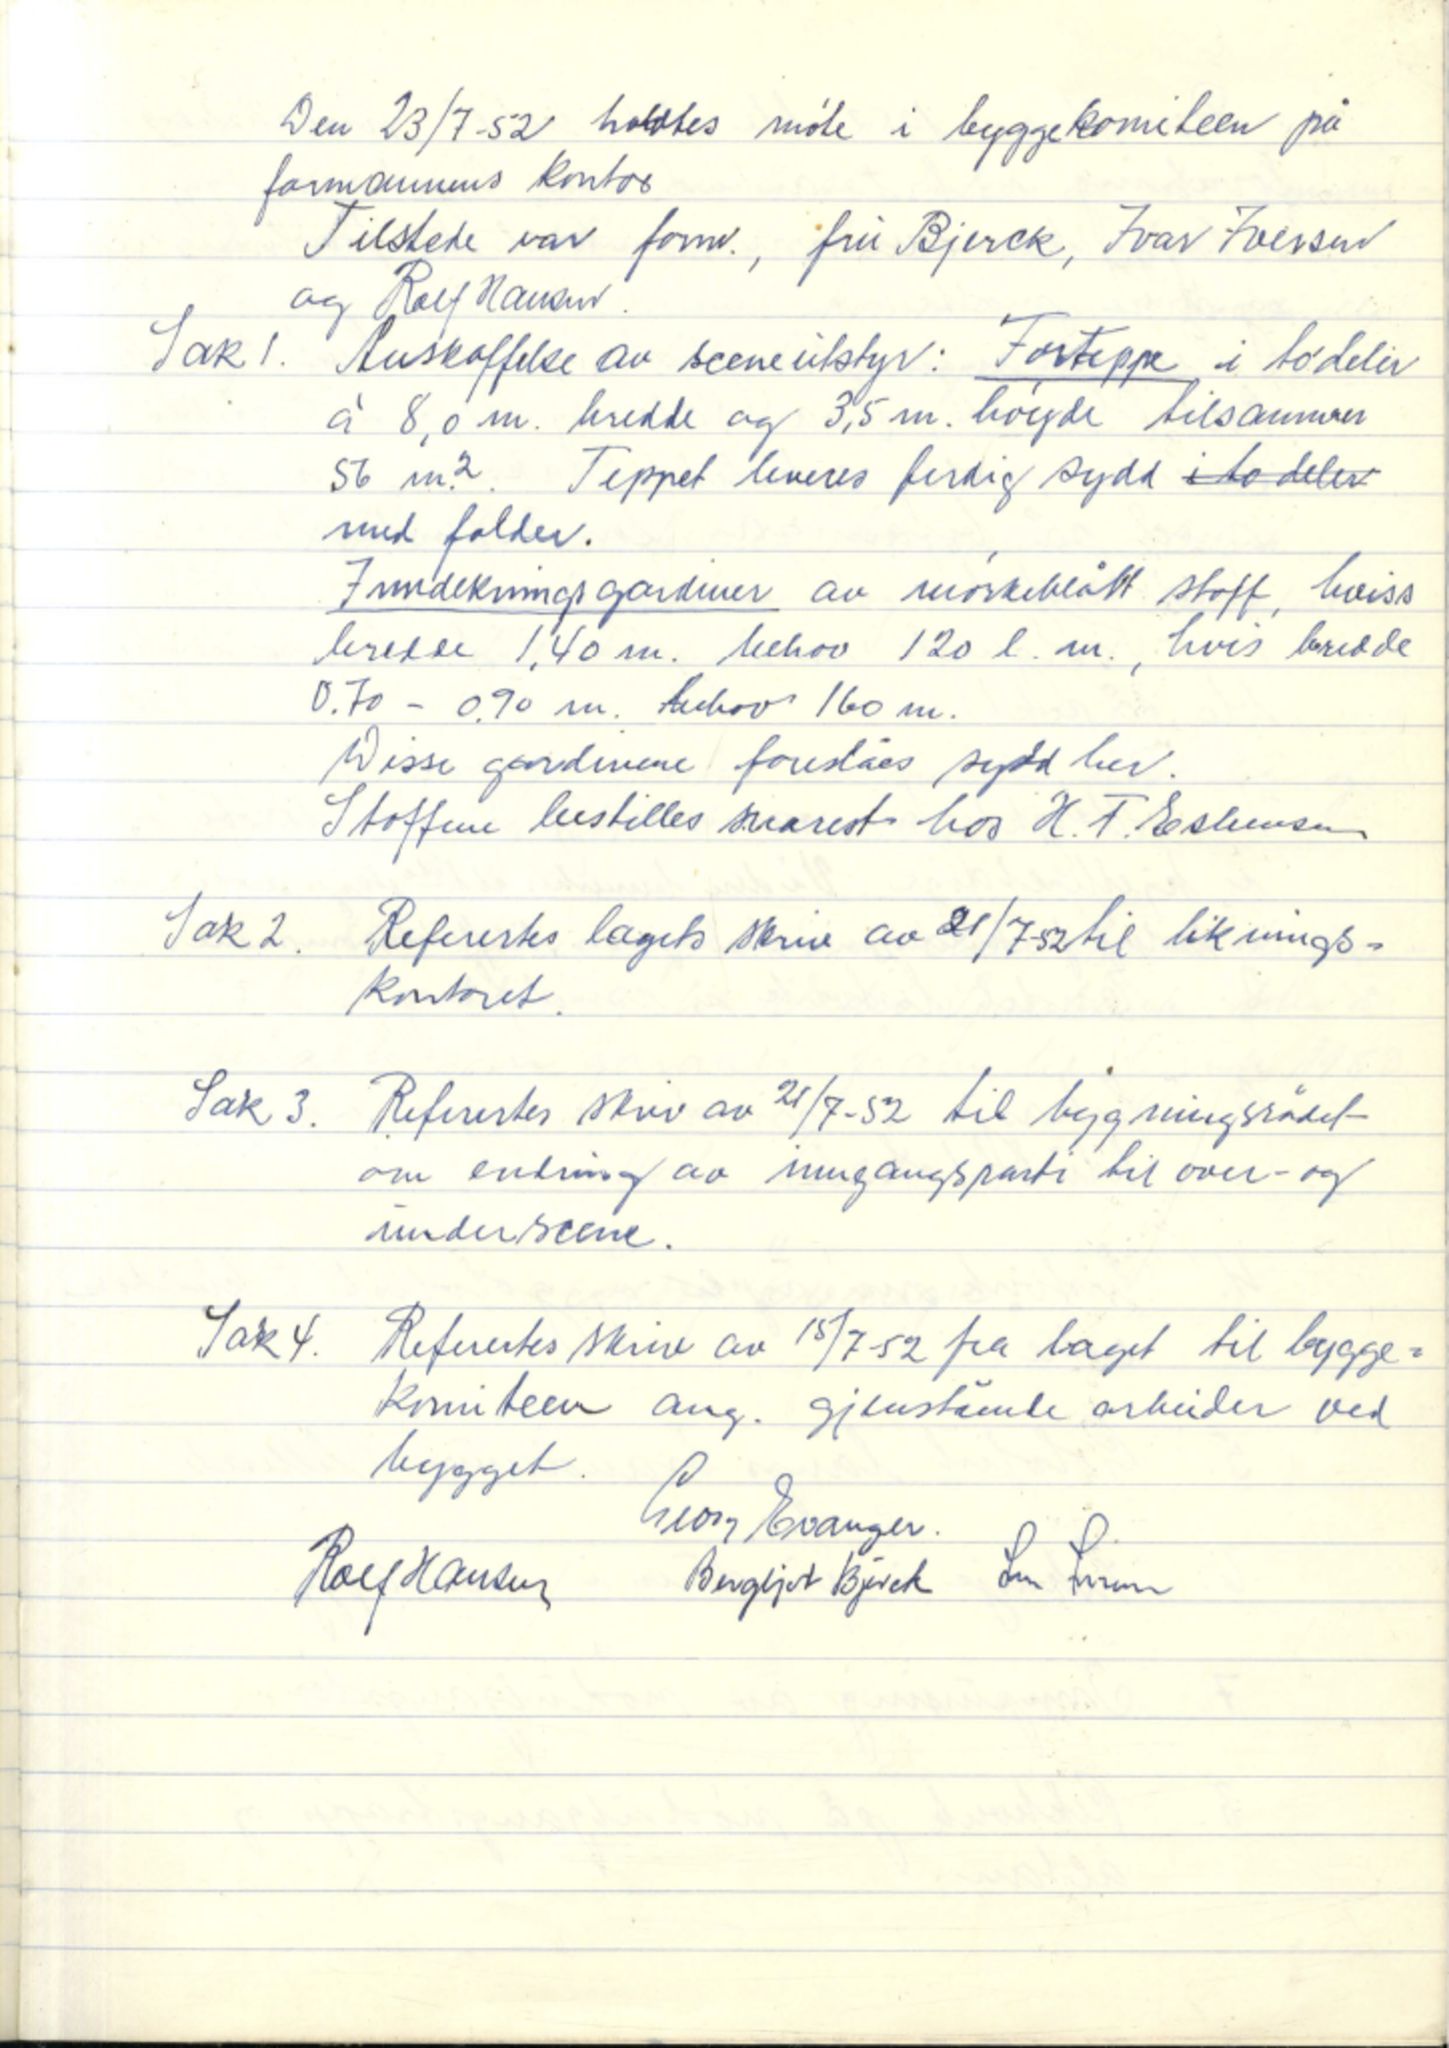 Den 23/7-52 holdtes møte i byggekomiteen på
formannens kontor
Tilstede var form., fru Bjerck, Ivar Iversen
og Rolf Hansen.
Sak 1. Anskaffelse av sceneutstyr: Forteppe i to deler
à 8,0 m. bredde og 3,5 m. høyde tilsammen
56 m². Teppet leveres ferdig sydd i to deler
med folder.
Inndekningsgardiner av mørkeblått stoff, hviss
bredde 1,40 m. behov 120 l. m., hvis bredde
0.70 - 0.90 m. behov 160 m.
Disse gardinene foreslåes sydd her.
Stoffene bestilles snarest hos H. T. Esbensen
Sak 2. Referertes lagets skriv av 21/7-52 til liknings-
kontoret.
Sak 3. Referertes skriv av 21/7-52 til bygningsrådet
om endring av inngangsparti til over- og
underscene.
Sak 4. Referertes skriv av 15/7-52 fra laget til bygge-
komiteen ang. gjenstående arbeider ved
bygget.
Georg Evanger.
Rolf Hansen Bergljot Bjerck